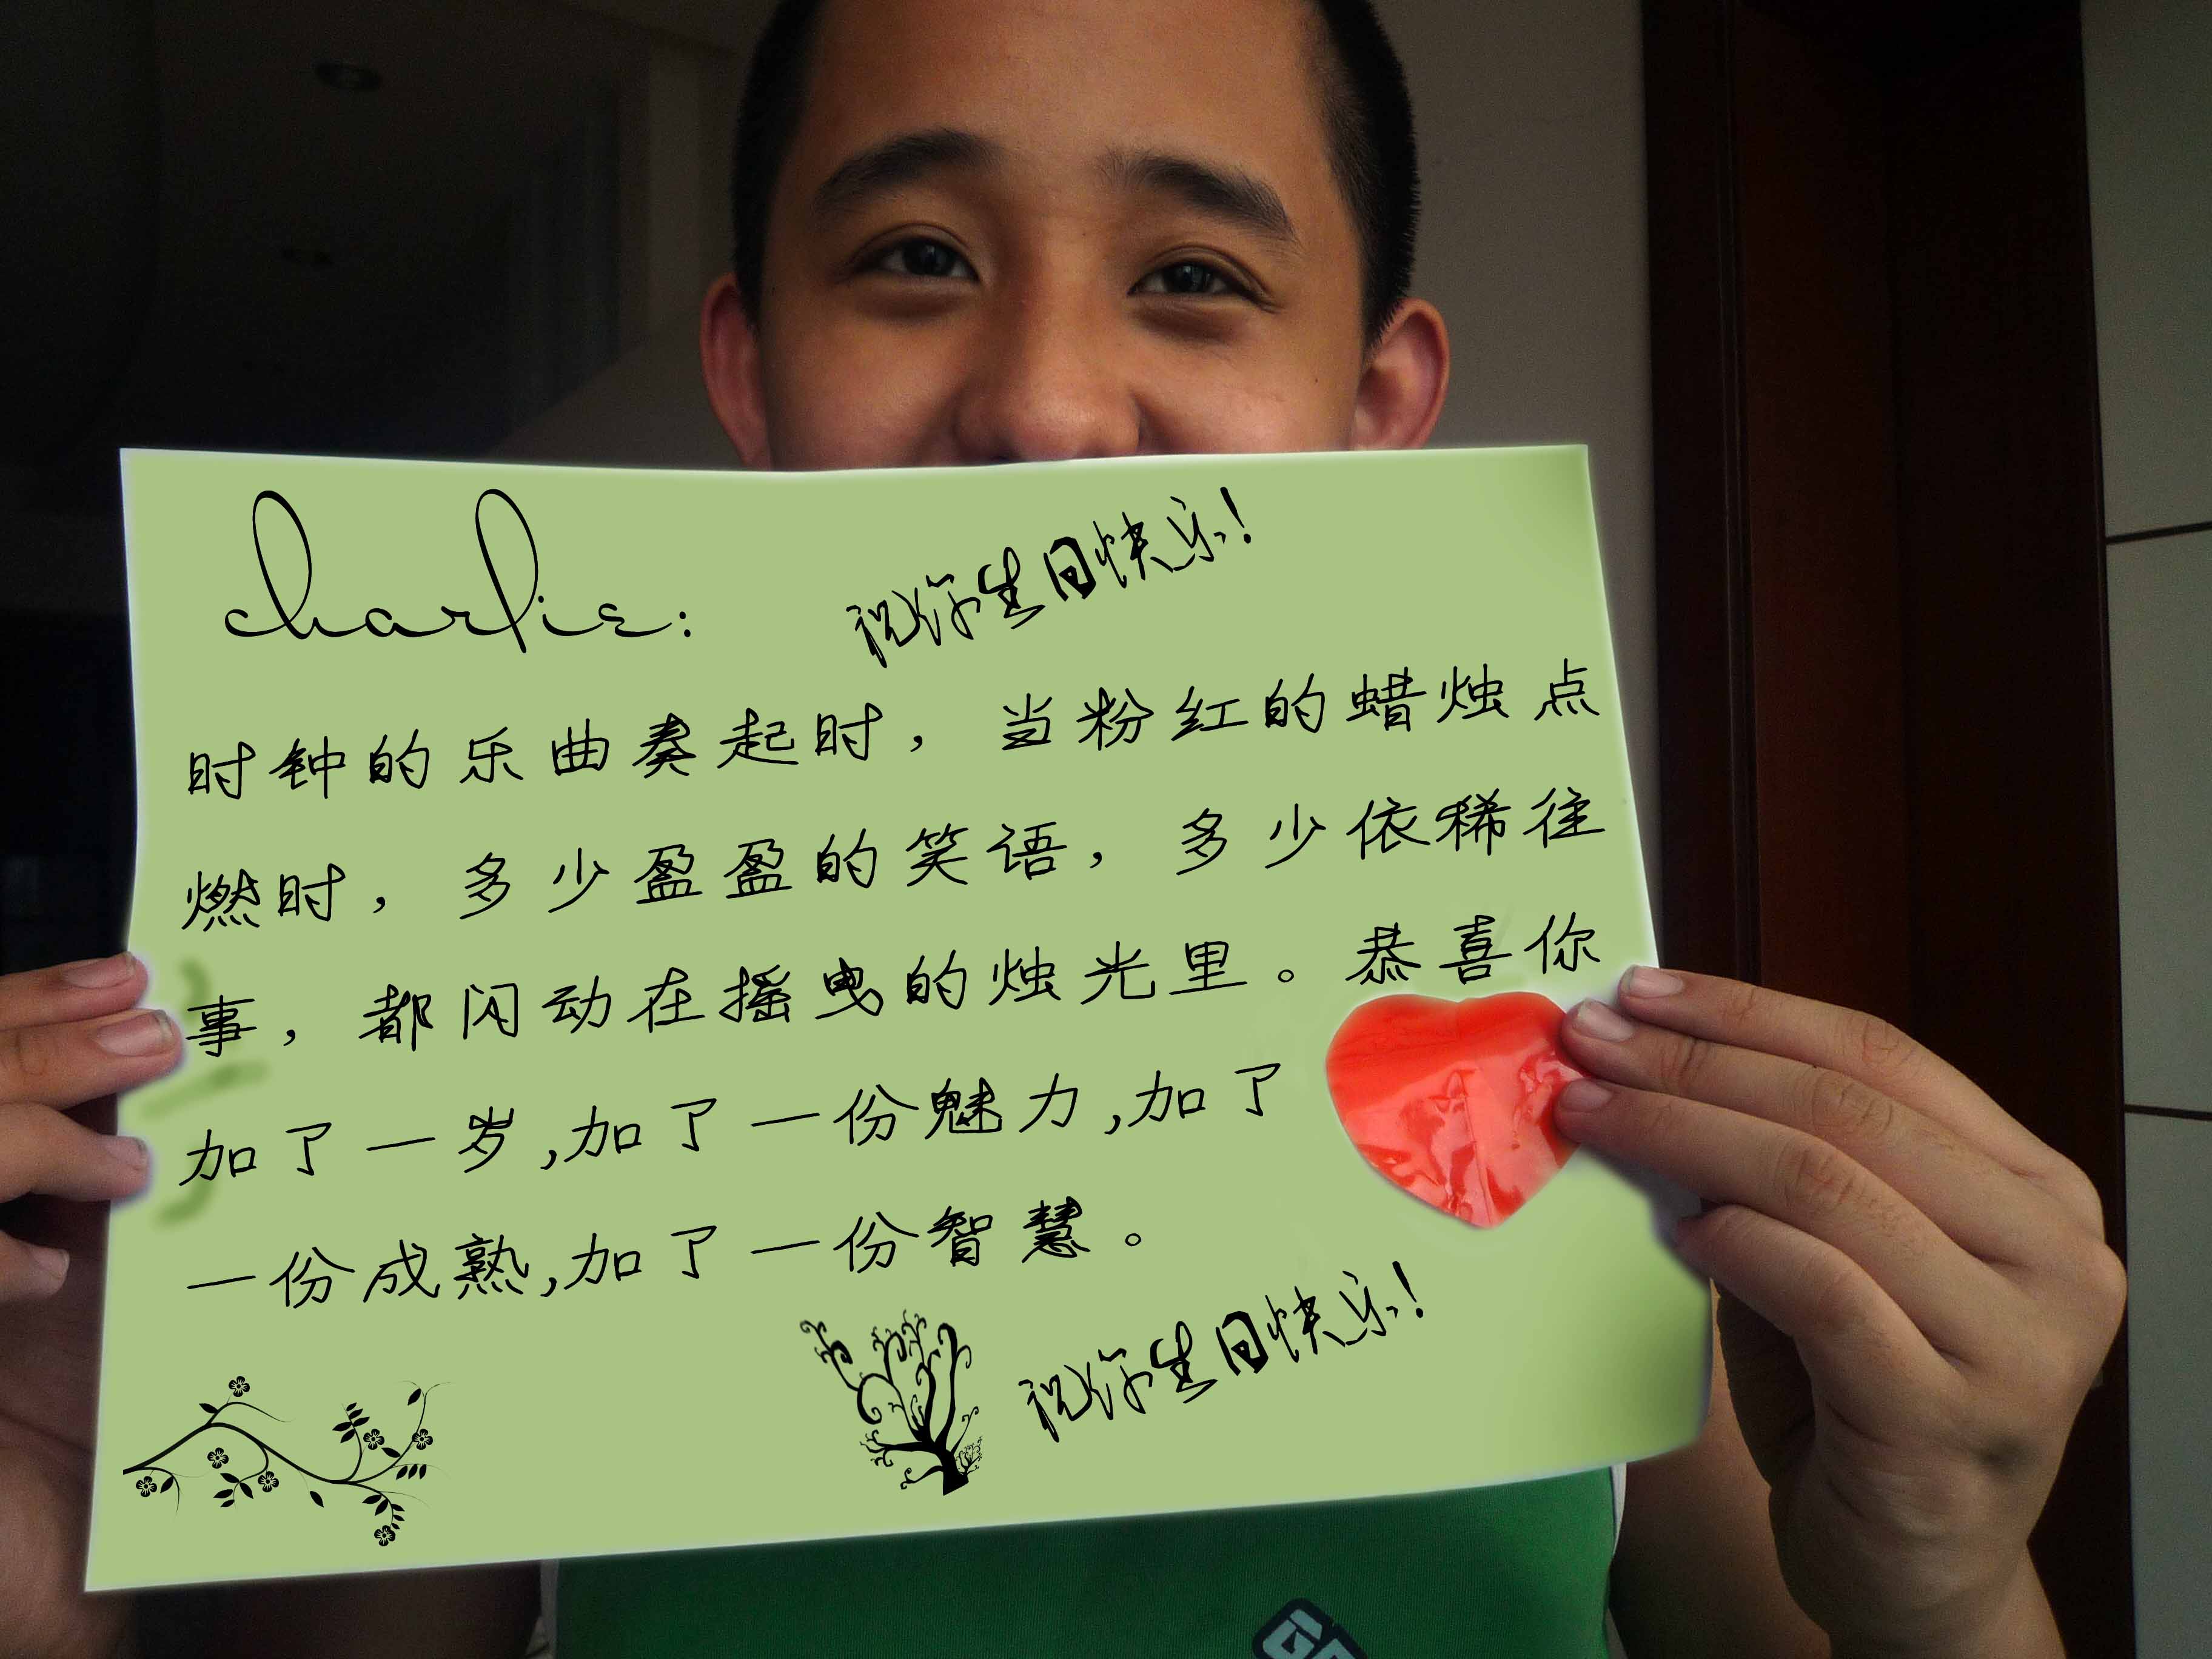 charlie:
祝你生日快乐!
时钟的乐曲奏起时，当粉红的蜡烛点
燃时，多少盈盈的笑语，多少依稀往
事，都闪动在摇曳的烛光里。恭喜你
加了一岁,加了一份魅力,加了
一份成熟,加了一份智慧。
祝你生日快乐!